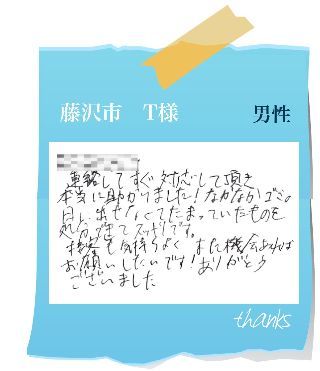 藤沢市 T様 男性
連絡してすぐ対応して頂き
本当に助かりました！なかなかゴミの
日に出せなくてたまっていたものを
処分できてスッキリです。
接客も気持ちよく また機会あれば
お願いしたいです！ありがとう
ございました
thanks